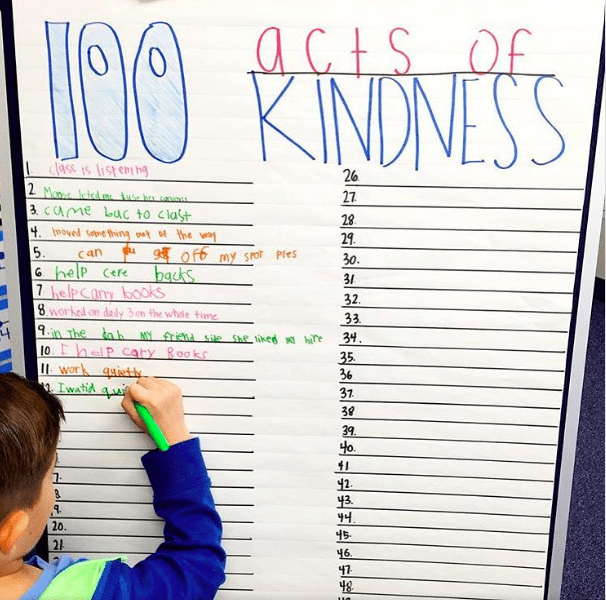 100 acts of
KINDNESS
1. class is listening
2. me to use her
3. came bac to clast
4. moved something out of the way
5. can you get off my spot ples
6. help cere backs
7. help carry books
8. worked on daily 3 on the whole time
9. in the my friend she liked my hire
10. I help cary Books
11. work quietly
12. I watid
20.
21.
26.
27.
28.
29.
30.
31.
32.
33.
34.
35.
36
37.
38
39.
40.
41
42.
43.
44.
45.
46.
47.
48.